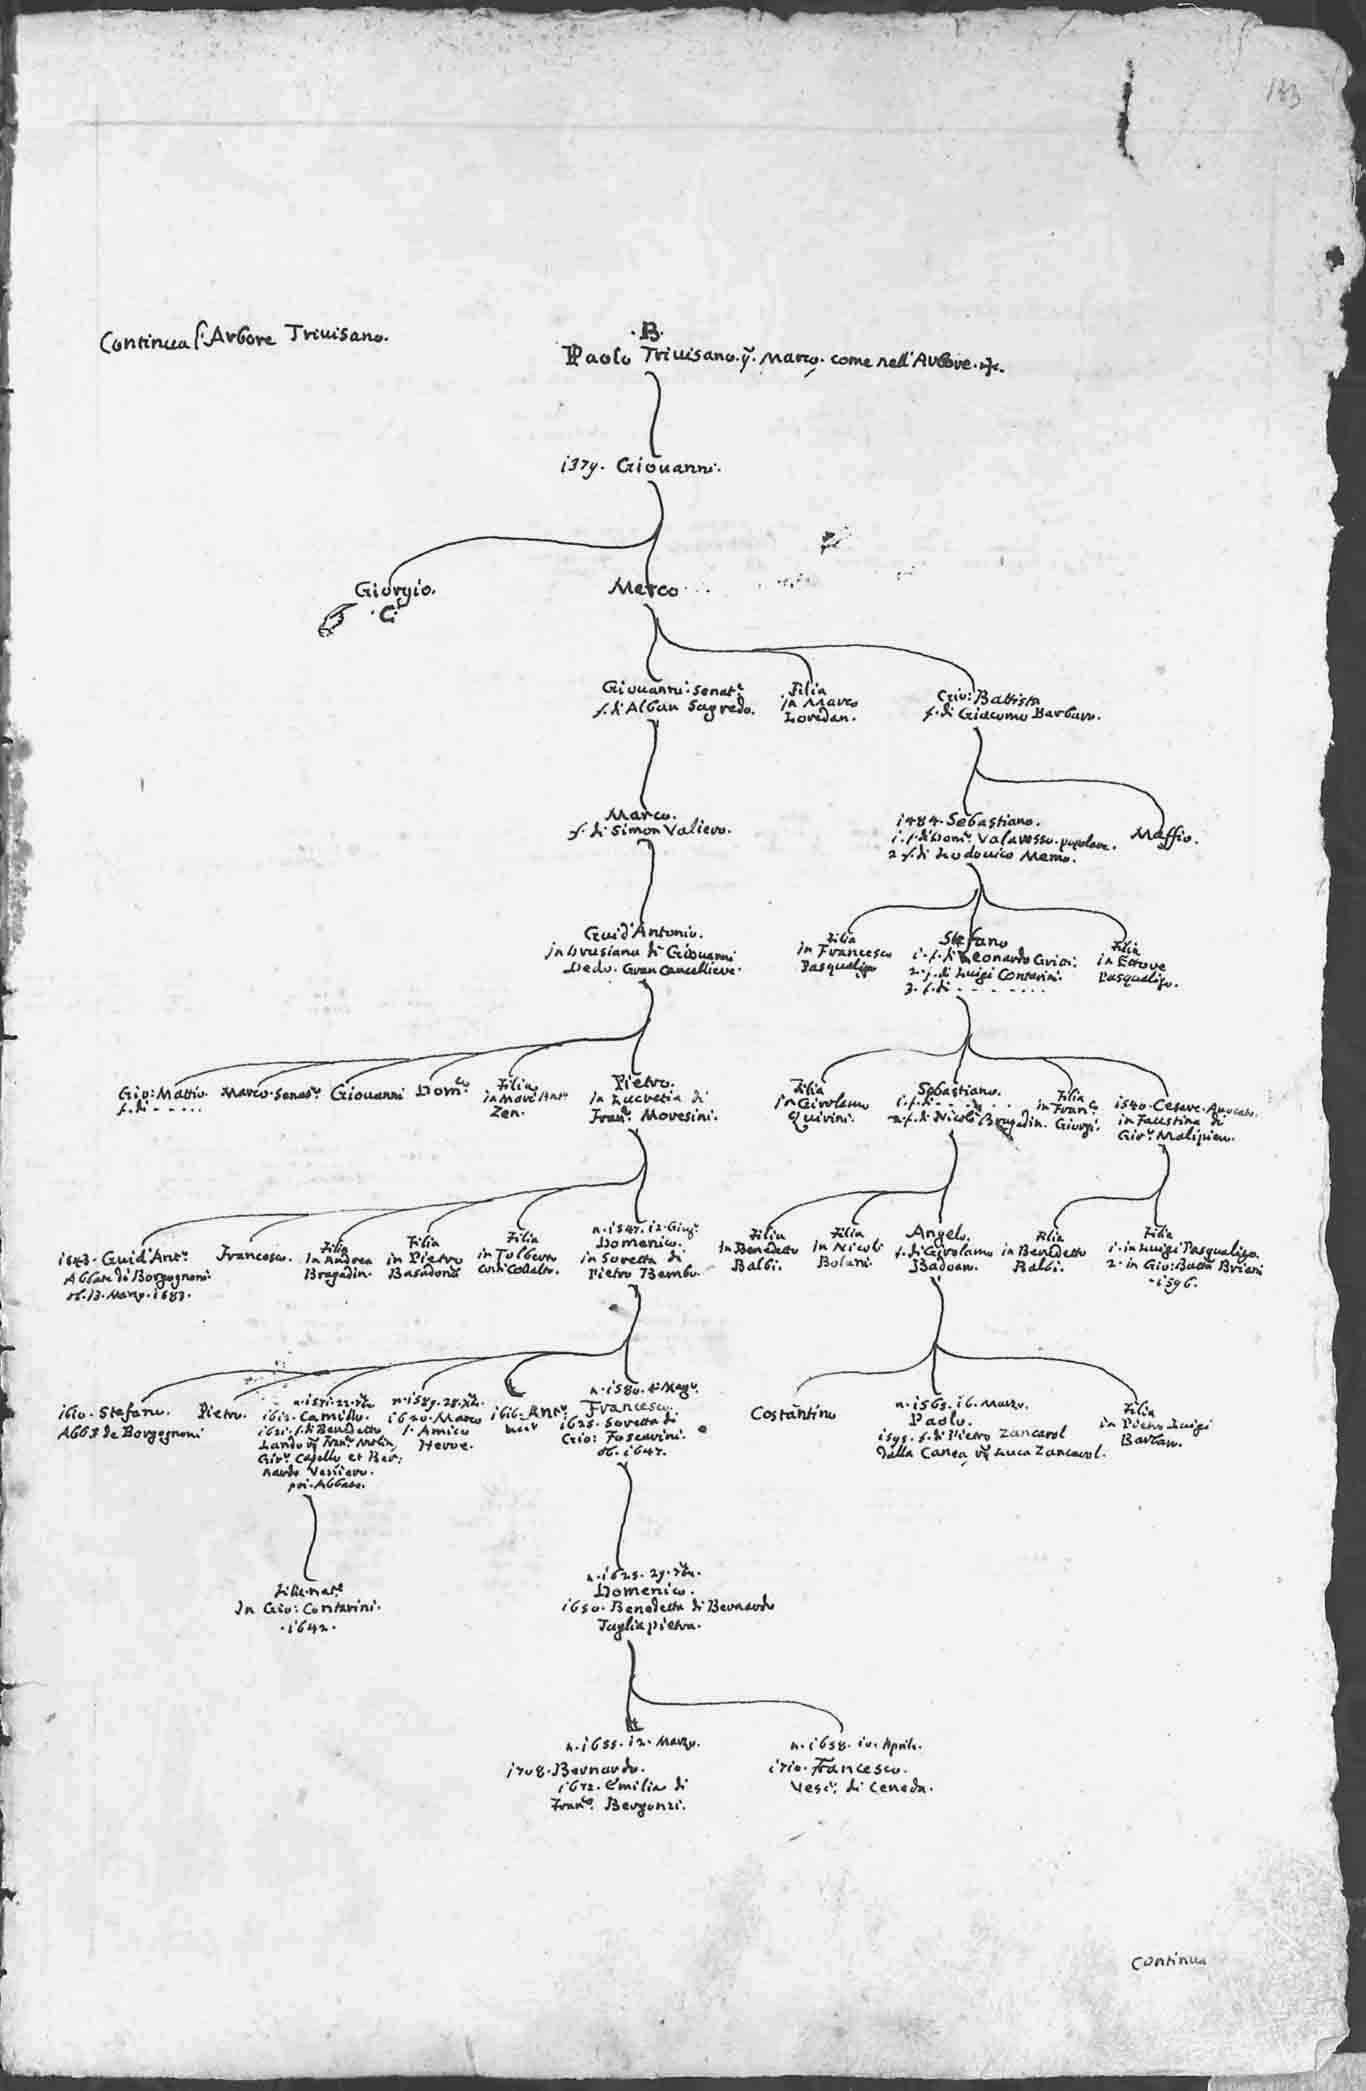 133
Continua l'Arbore Trivisano.
.B.
Paolo Trivisano. q. Marco. come nell'Arbore.
1379. Giovanni.
Giorgio.
.C.
Marco
Giovanni: senat.
f. di Alban Sagredo.
Filia
in Marco
Loredan.
Gio: Battista
f. di Giacomo Barbaro.
Marco.
f. di Simon Valiero.
1484. Sebastiano.
1. f. di Dom. Valaresso. popolare.
2 f. di Lodovico Memo.
Maffio.
Guid'Antonio.
in Drusiana di Giovanni
Dedo. Gran Cancelliere.
Filia
in Francesco
Pasqualigo
Stefano
1. f. di Leonardo Grioni.
2. f. di Luigi Contarini.
3. f. di - - - - - -
Filia
in Ettore
Pasqualigo.
Gio: Mattio.
f. di - - - - -
Marco. Senat.
Giovanni
Dom.co
Filia
in Marc'Ant.
Zen.
Pietro.
in Lucretia di
Fran.co Moresini.
Filia
in Girolamo
Quirini.
Sebastiano.
1. f. di - - - -
2. f. di Nicolò Bragadin.
Filia
in Fran.co
Giorgi.
1540. Cesare. Avocato.
in Faustina di
Gir. Malipiero.
1643. Guid'Ant.
Abbate di Borgognoni.
ob. 13. Marzo.
Francesco.
Filia
in Andrea
Bragadin.
Filia
in Pietro
Basadona
Filia
in Tolberto
Conti Collalto.
n. 1547. 12. Giug.
Domenico.
in Soretta di
Pietro Bembo.
Filia
in Benedetto
Balbi.
Filia
in Nicolò
Bolani.
Angelo.
f. di Girolamo
Badoaro.
Filia
in Benedetto
Balbi.
Filia
1. in Luigi Pasqualigo.
2. in Gio: Batta Briani
.1596.
1610. Stefano.
Abb. de Borgognoni
Pietro.
1612. Camillo.
1621. f. di Benedetto
Lando
Gir. Capello et Ber:
nardo Veniero.
poi. Abbate.
n. 1589.
1620. Marco
f. Amico
Heroe.
1616. Ant.
n. 1580.
Francesco.
1625. Soretta di
Gio: Foscarini.
ob. 1647.
Costantino
n. 1565. 16. Marzo.
Paolo.
1595. f. di Pietro Zancarol
dalla Canea, q. Luca Zancarol.
Filia
in Pietro Luigi
Barbaro.
Filia nat.
In Gio: Contarini.
.1642.
n. 1625. 29.
Domenico.
1650. Benedetta di Bernardo
Tagliapietra.
n. 1655. 12. Marzo.
1708. Bernardo.
1672. Emilia di
Fran.co Bergonzi.
n. 1658. 10. Aprile.
1710. Francesco.
Vesc. di Ceneda.
Continua